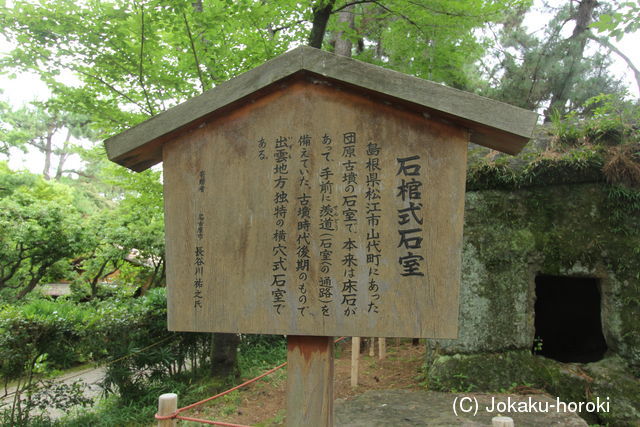 石棺式石室
島根県松江市山代町にあった
団原古墳の石室で、本来は床石が
あって、手前に羨道（石室への通路）を
備えていた。古墳時代後期のもので、
出雲地方独特の横穴式石室で
ある。
寄贈者 名古屋市 長谷川祐之氏
(C) Jokaku-horoki